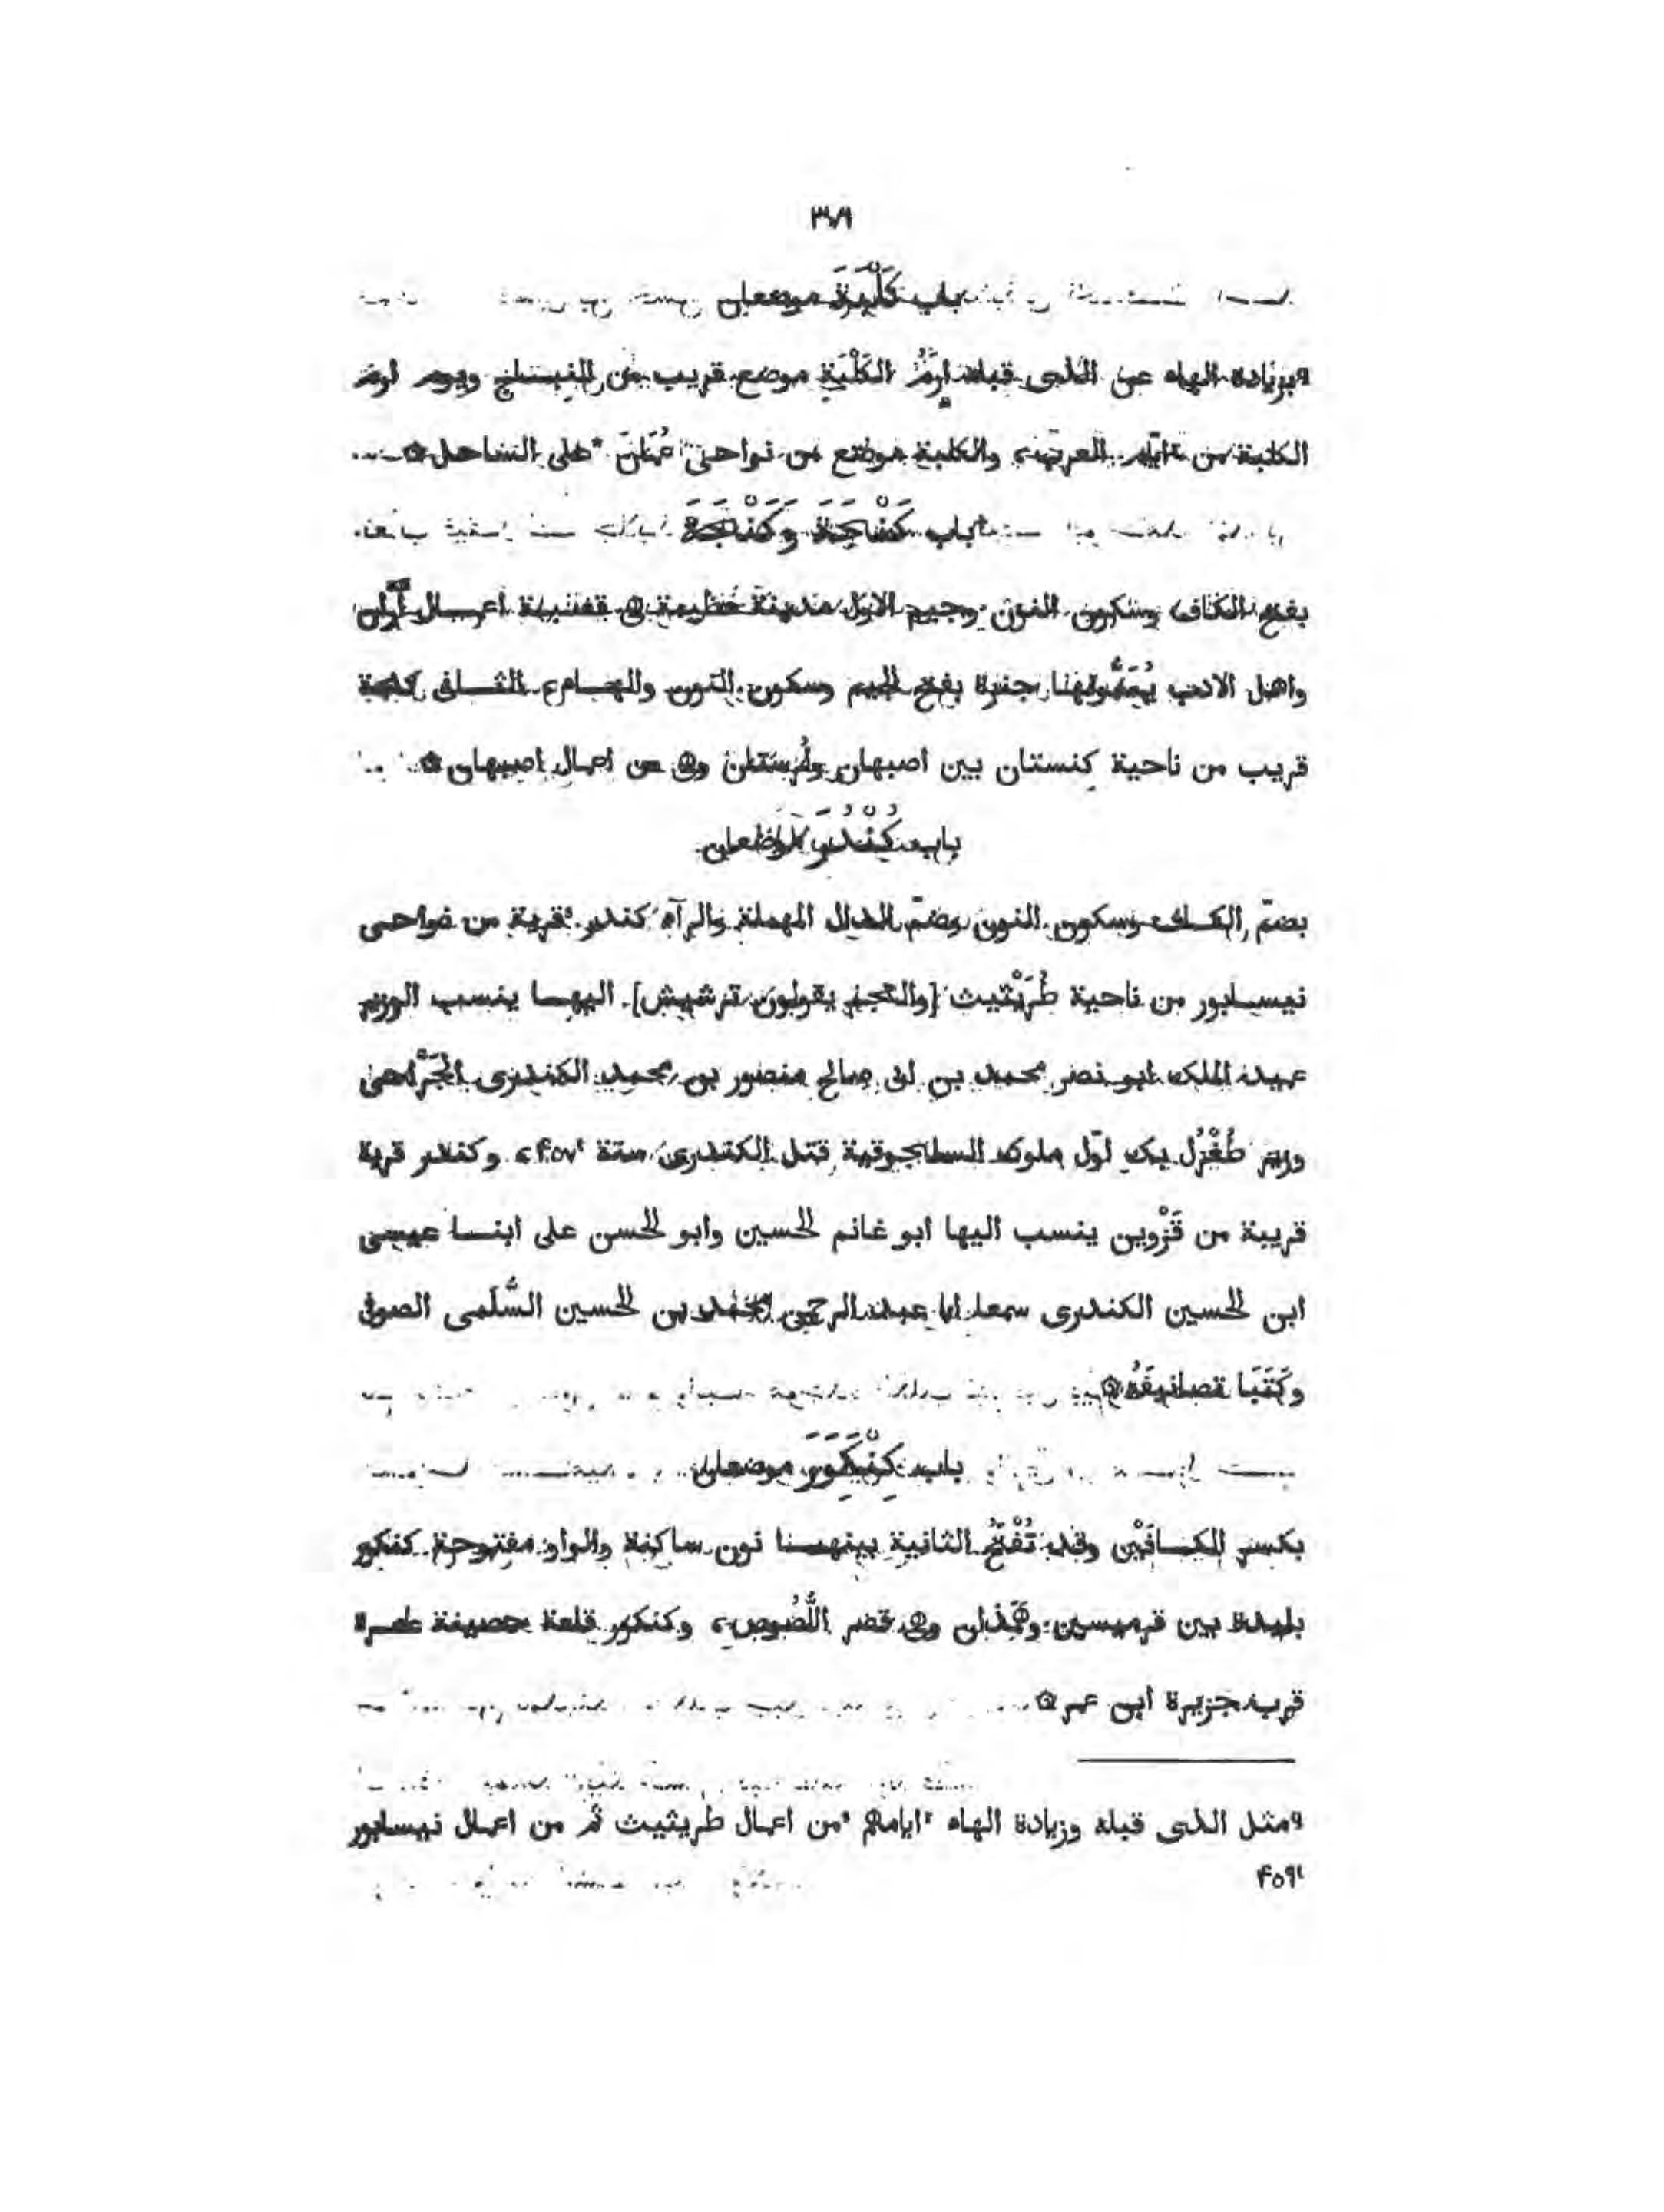 ٣٧٦
باب كَلْبَةَ موضعان
بزيادة الهاء عن الذى قبله اِرَمُ الكَلْبَةِ موضع قريب من النباج ويوم ارم
الكلبة من ايام العرب، والكلبة موضع من نواحى عُمَان على الساحل ۞
باب كَنْجَةَ وَكَنْجَةَ
بفتح الكاف وسكون النون وجيم الاول مدينة عظيمة وهى قصبة اعمال أرّان
واهل الادب يُسَمُّونها جنزة بفتح الجيم وسكون النون والزاء، الثانى كنجة
قريب من ناحية كنستان بين اصبهان ولُرستان وهى من اعمال اصبهان ۞
باب كُنْدُرَ موضعان
بضمّ الكاف وسكون النون وضمّ الدال المهملة والرآء كندر قرية من نواحى
نيسابور من ناحية طُرَيْثيث [والعجم يقولون ترشيش] اليها ينسب الوزير
عميد الملك ابو نصر محمد بن ابى صالح منصور بن محمد الكندرى الجَرَّاحى
وزير طُغْرُل بك اوّل ملوك السلجوقية قتل الكندرى سنة ۴۵۷، وكندر قرية
قريبة من قَزْوين ينسب اليها ابو غانم الحسين وابو الحسن على ابنا عيسى
ابن الحسين الكندرى سمعا ابا عبد الرحمن محمد بن الحسين السُّلَمى الصوفى
وكَتَبَا تصانيفَهُ ۞
باب كِنْكِوَرَ موضعان
بكسر الكافَيْن وقد تُفْتَحُ الثانية بينهما نون ساكنة والواو مفتوحة كنكور
بليدة بين قرميسين وهَمَذان وهى قصر اللُّصُوص، وكنكور قلعة حصينة عامرة
قرب جزيرة ابن عمر ۞
مثل الذى قبله وزيادة الهاء ايامهم من اعمال طريثيث ثم من اعمال نيسابور
۴۵۹